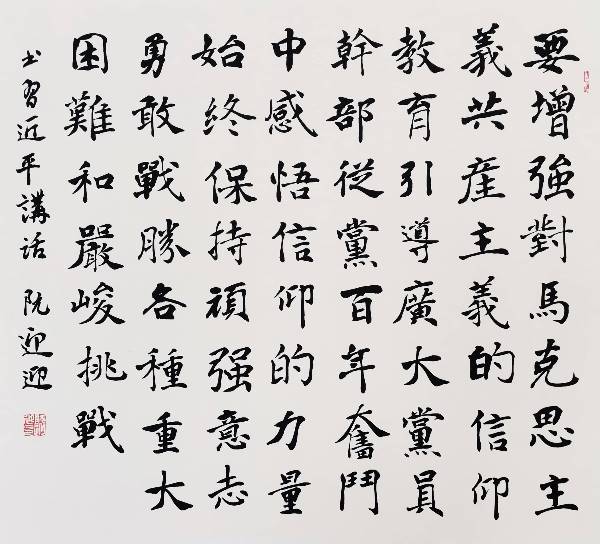 要增強對馬克思主
義共產主義的信仰
教育引導廣大黨員
幹部從黨百年奮鬥
中感悟信仰的力量
始終保持頑强意志
勇敢戰勝各種重大
困難和嚴峻挑戰
书習近平講话 阮迎迎